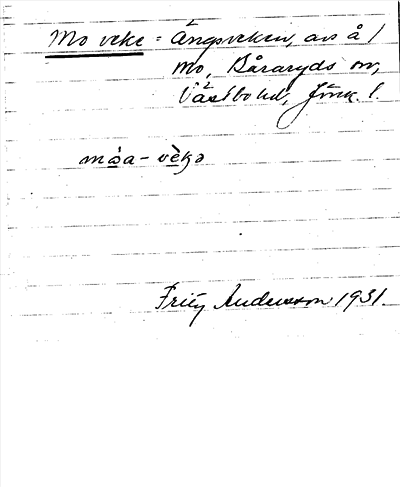 Mo veke = Ängsveken, avs å /
Mo, Båraryds sn,
Västbo hd, Jönk. l.
mòa - vèkə
Fritz Andersson 1931.